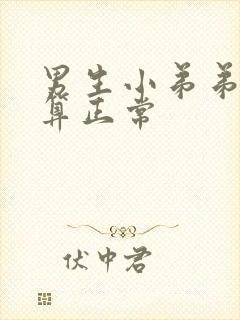 男生小弟弟
算正常
伏中君